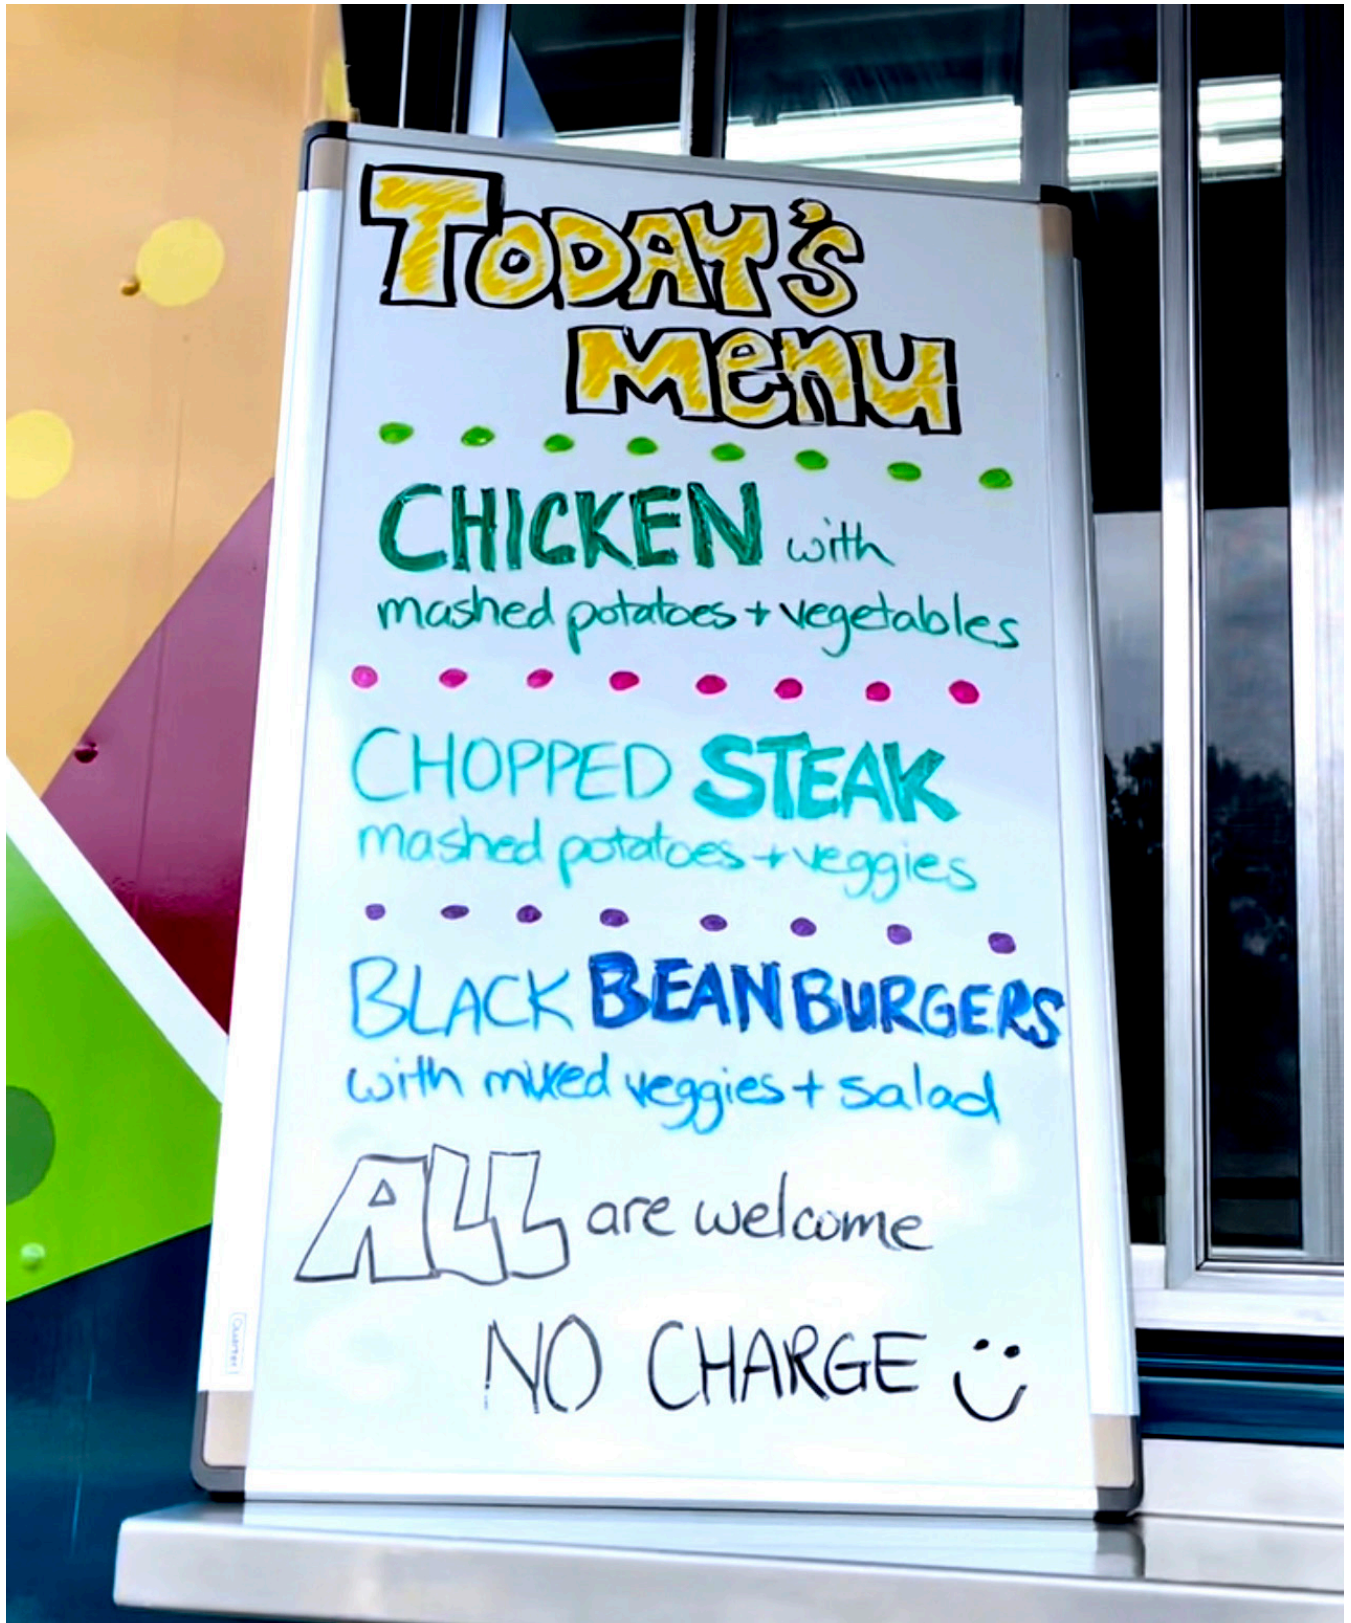 TODAY'S
MENU
CHICKEN with
mashed potatoes + vegetables
CHOPPED STEAK
mashed potatoes + veggies
BLACK BEAN BURGERS
with mixed veggies + salad
ALL are welcome
NO CHARGE
Quartet